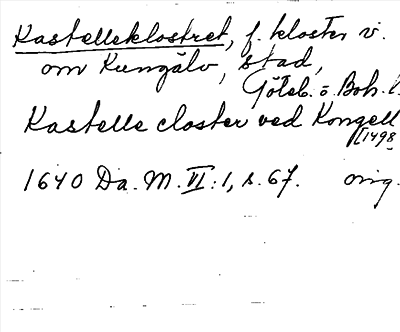 Kastelleklostret, f. kloster v.
om Kungälv, stad,
Göteb. o. Boh. l.
Kastelle closter ved Kongell
[1498
1640 Da. M. VI:1, s. 67. orig.